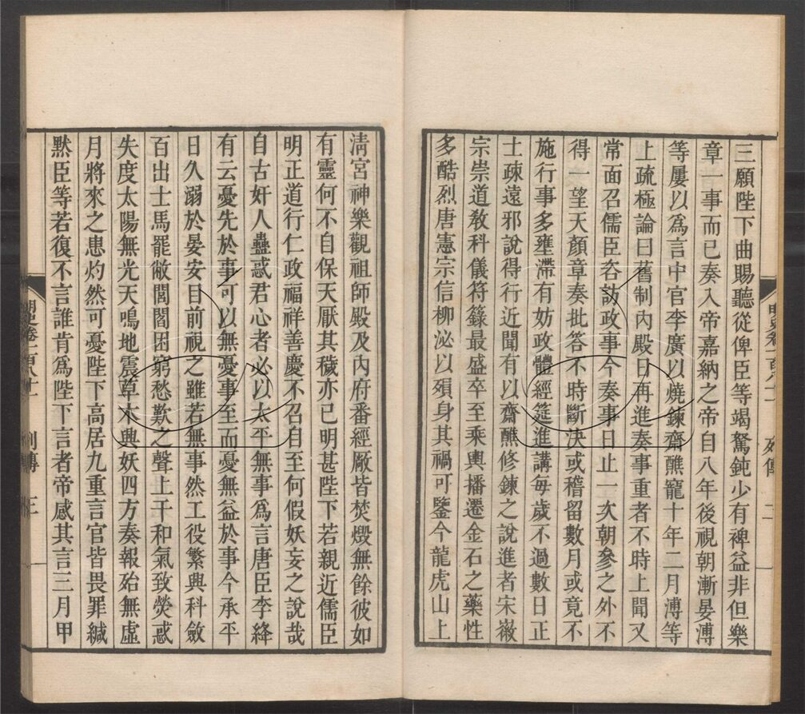 三願陛下曲賜聽從俾臣等竭駑鈍少有裨益非但樂
章一事而已奏入帝嘉納之帝自八年後視朝漸晏溥
等屢以爲言中官李廣以燒鍊齋醮寵十年二月溥等
上疏極論曰舊制內殿日再進奏事重者不時上聞又
常面召儒臣咨訪政事今奏事日止一次朝參之外不
得一望天顏章奏批答不時斷決或稽留數月或竟不
施行事多壅滯有妨政體經筵進講每歲不過數日正
士疎遠邪說得行近聞有以齋醮修鍊之說進者宋徽
宗崇道敎科儀符籙最盛卒至乘輿播遷金石之藥性
多酷烈唐憲宗信柳泌以殞身其禍可鑒今龍虎山上
清宮神樂觀祖師殿及內府番經厰皆焚燬無餘彼如
有靈何不自保天厭其穢亦已明甚陛下若親近儒臣
明正道行仁政福祥善慶不召自至何假妖妄之說哉
自古奸人蠱惑君心者必以太平無事爲言唐臣李絳
有云憂先於事可以無憂事至而憂無益於事今承平
日久溺於晏安目前視之雖若無事然工役繁興科斂
百出士馬罷敝閭閻困窮愁歎之聲上干和氣致熒惑
失度太陽無光天鳴地震草木興妖四方奏報殆無虛
月將來之患灼然可憂陛下高居九重言官皆畏罪緘
默臣等若復不言誰肯爲陛下言者帝感其言三月甲
明史卷一百八十一 列傳 二
明史卷一百八十一 列傳 三